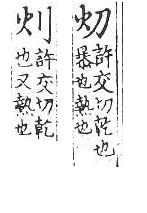 灱許交切熮也
暴也熱也
灲許交切乾
也又熱也